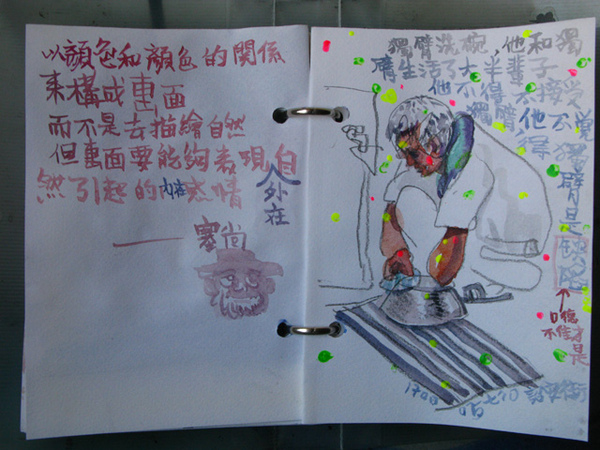 以顏色和顏色的關係
來構成畫面
而不是去描繪自然
但畫面要能夠表現自
然引起的內在感情
外在
——塞尚
獨臂洗碗，他和獨
臂生活了大半輩子
他不得不接受
獨臂，他不覺
得獨臂是缺陷
口德
不佳才是
1700 詔安街